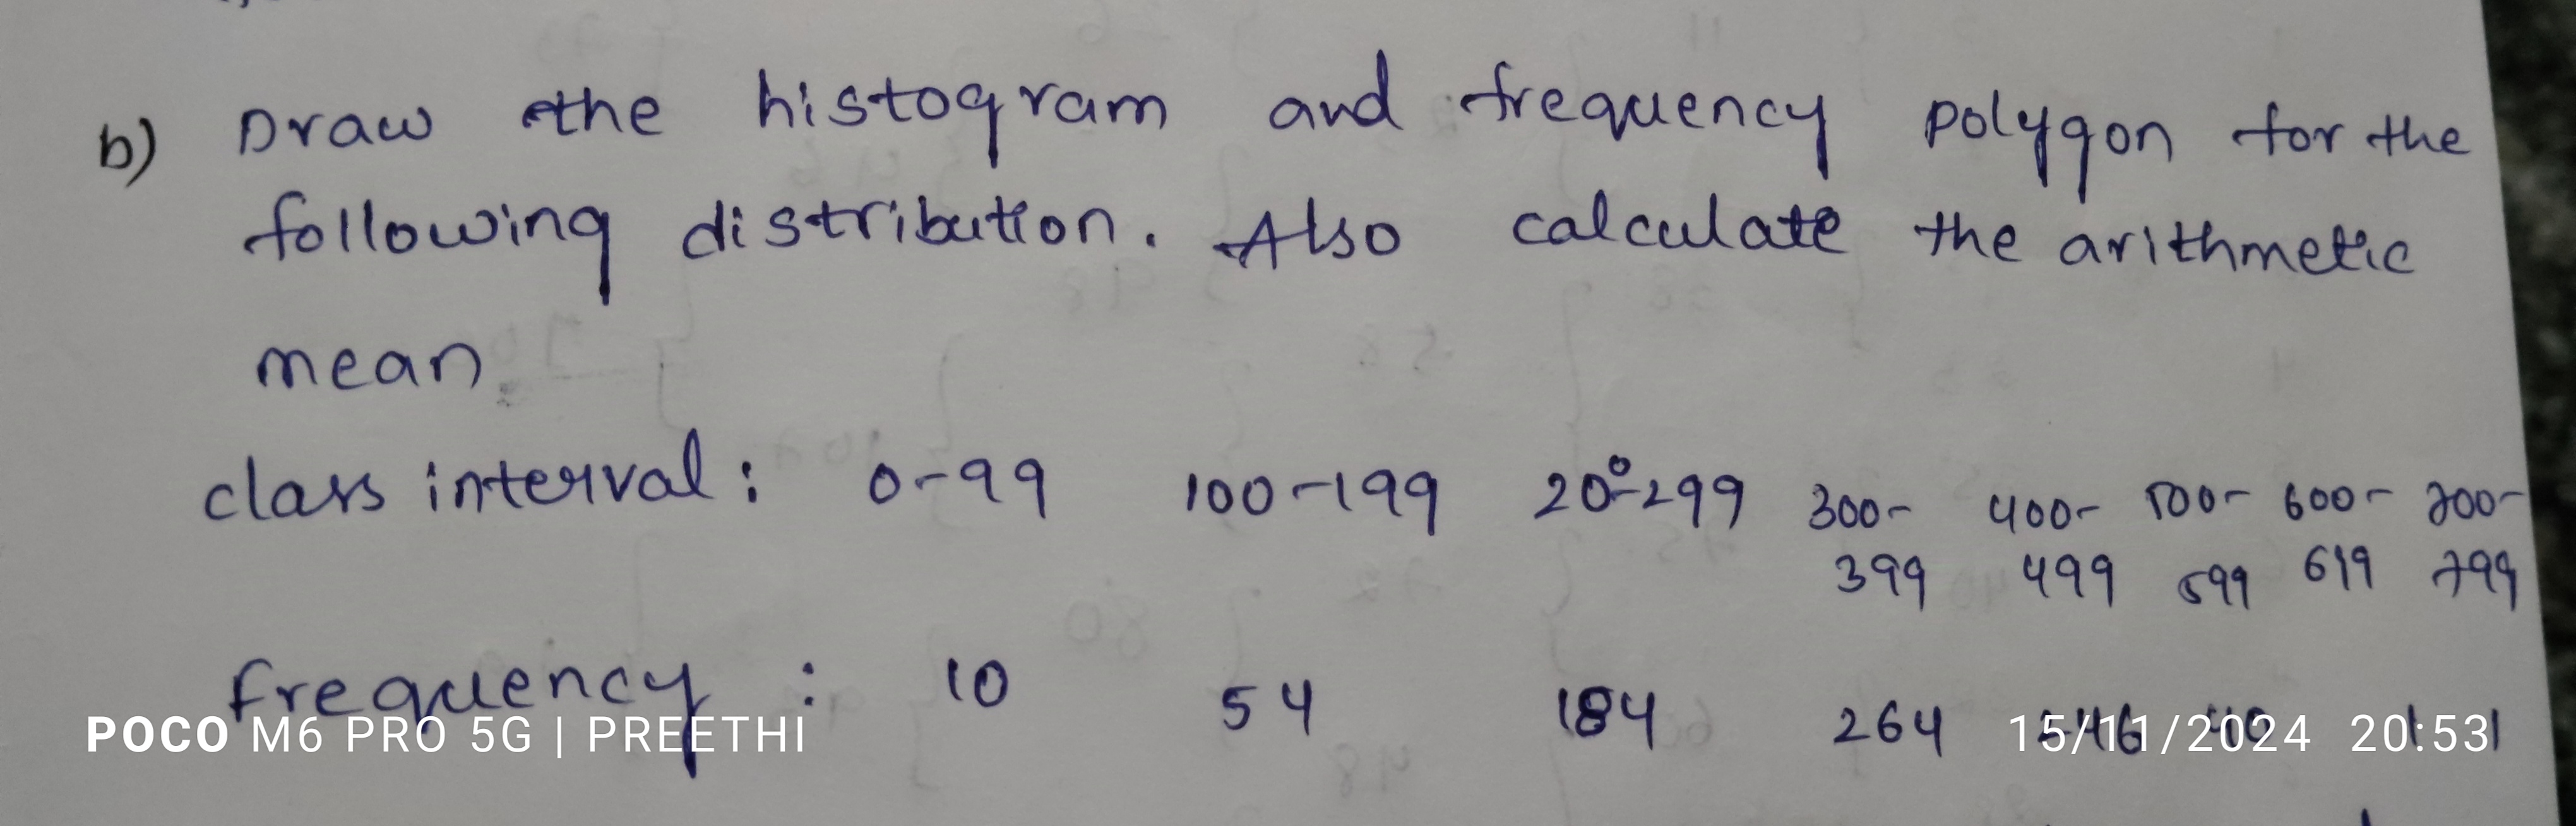 b) Draw the histogram and frequency polygon for the
following distribution. Also calculate the arithmetic
mean.
class interval : 0-99 100-199 200-299 300- 400- 500- 600- 700-
399 499 599 619 799
frequency : 10 54 184 264
POCO M6 PRO 5G | PREETHI 15/11/2024 20:53